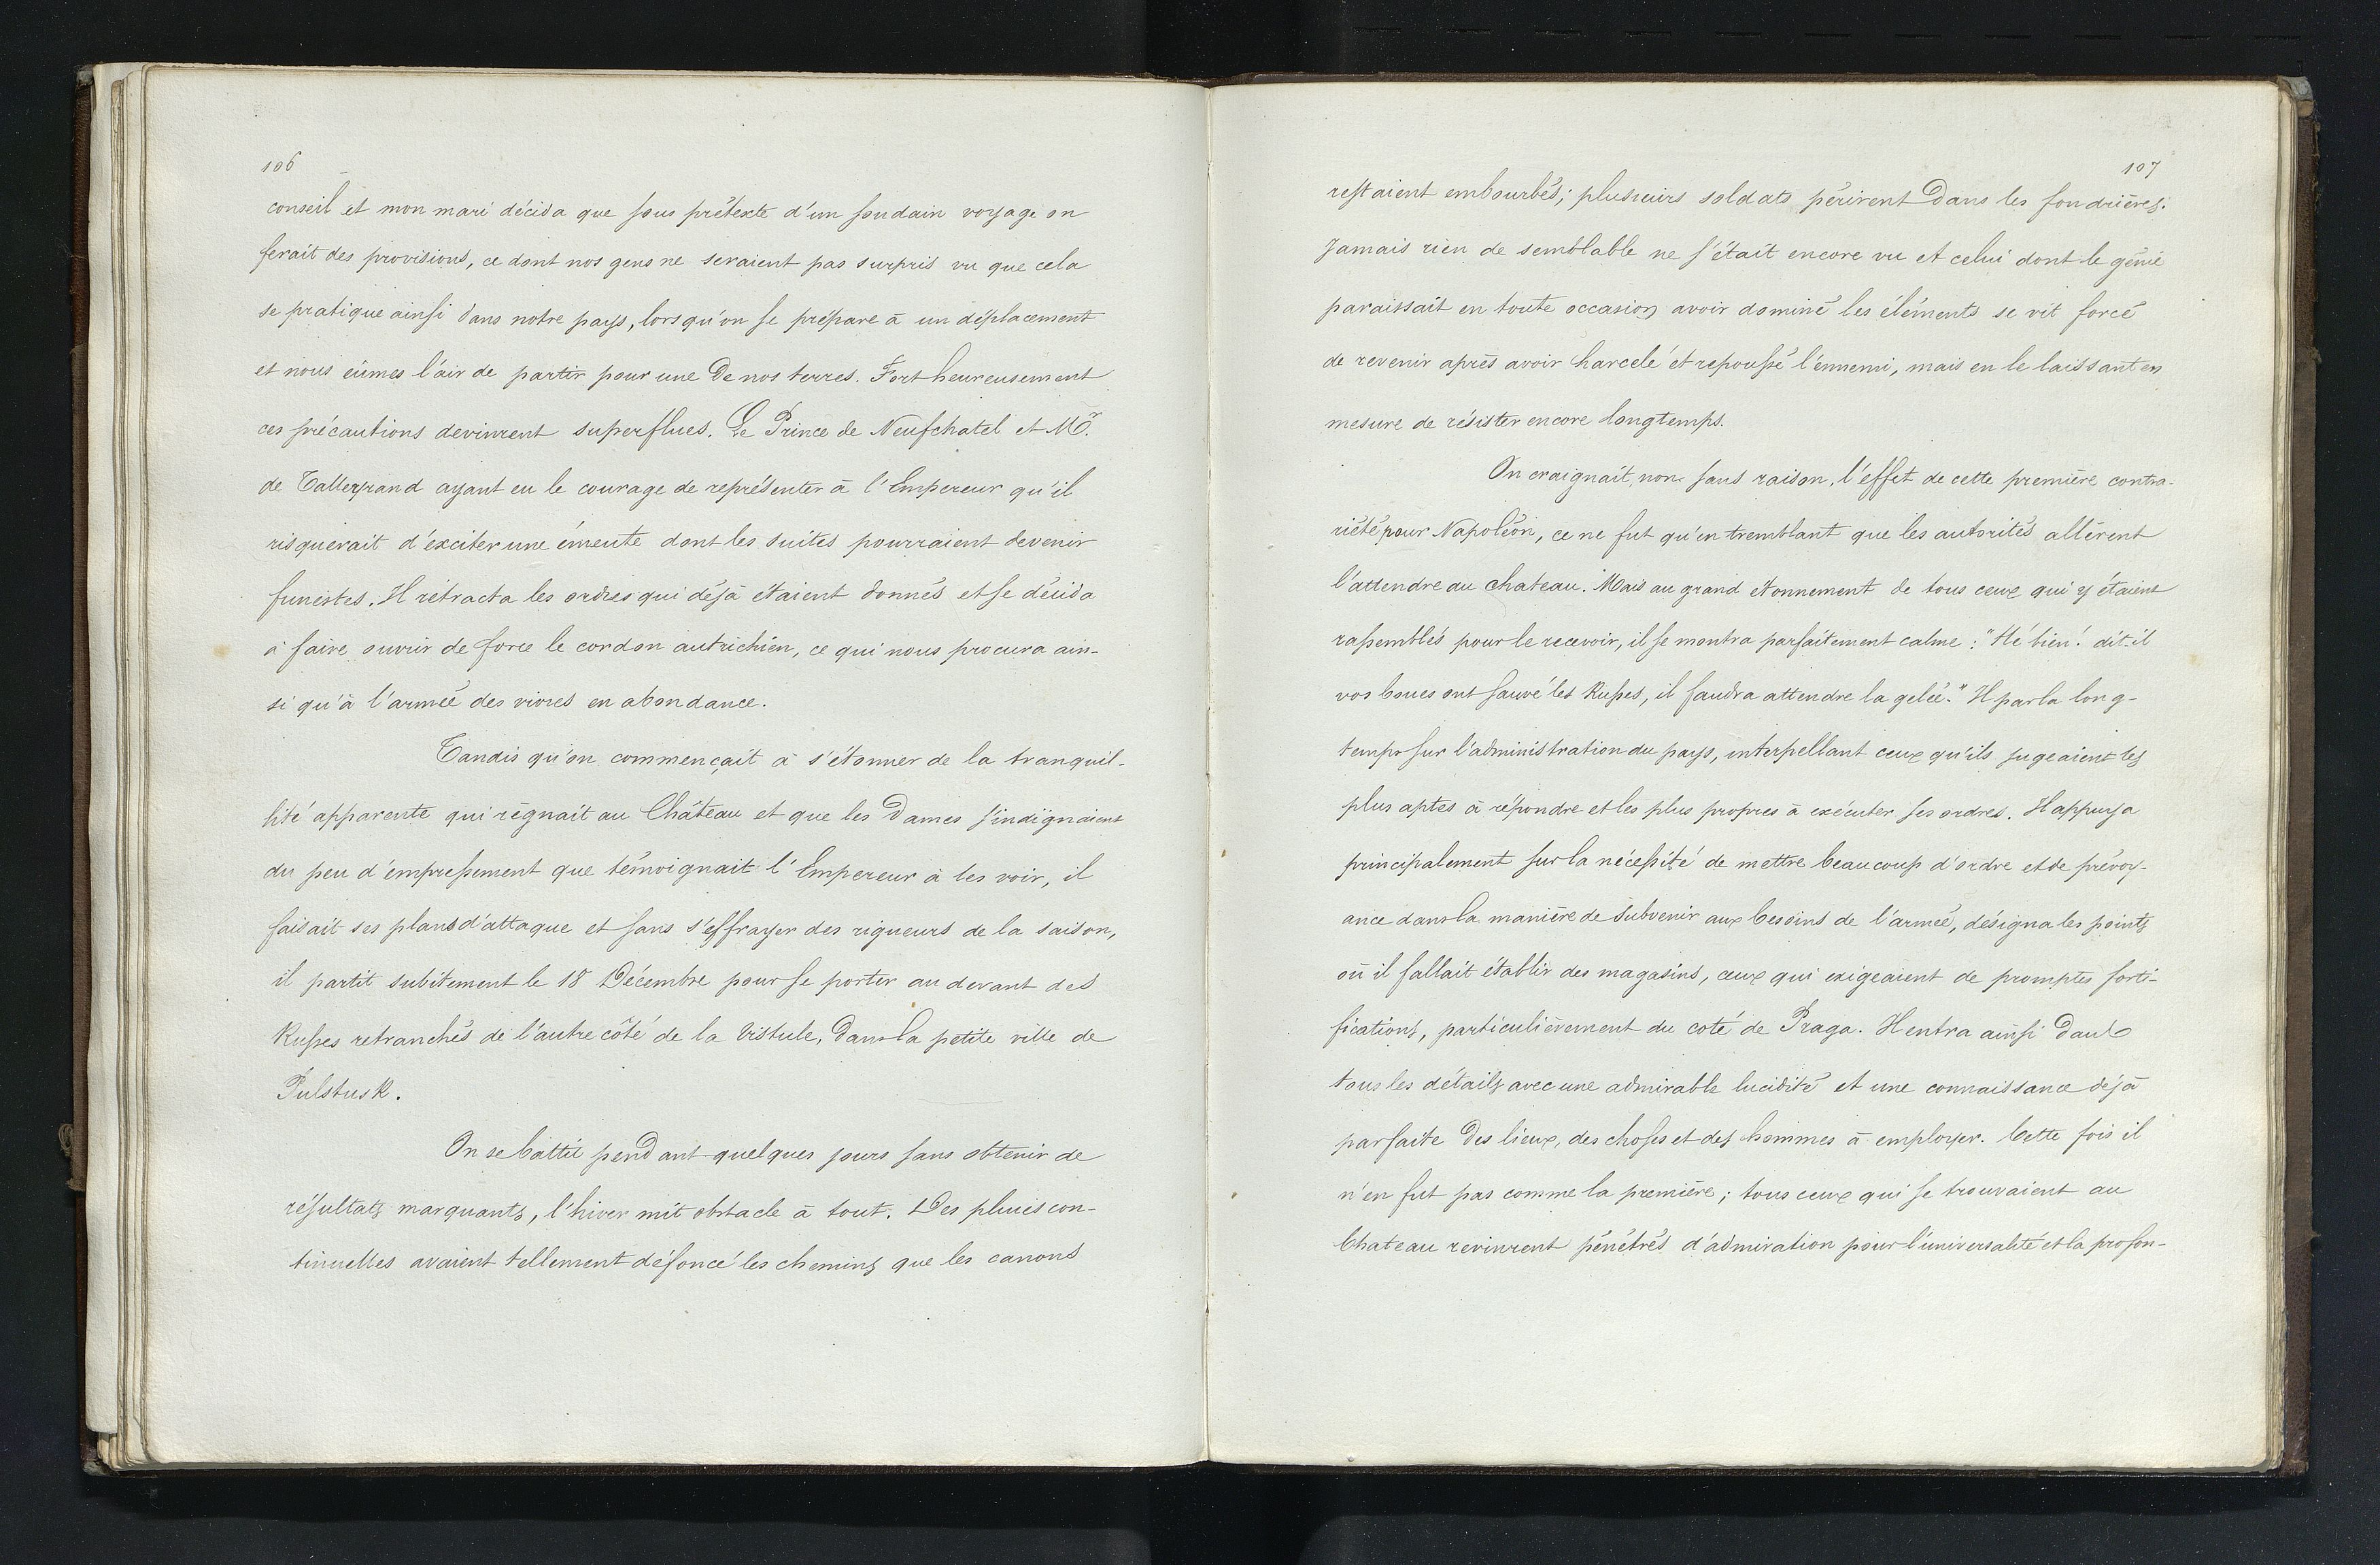 106
conseil et mon mari décida que sous prétexte d'un soudain voyage on
ferait des provisions, ce dont nos gens ne seraient pas surpris vu que cela
se pratique ainsi dans notre pays, lorsqu'on se prépare à un déplacement
et nous eûmes l'air de partir pour une de nos terres. Fort heureusement
ces précautions devinrent superflues. Le Prince de Neufchatel et Mr.
de Talleyrand ayant eu le courage de représenter à l'Empereur qu'il
risquerait d'exciter une émeute dont les suites pourraient devenir
funestes. Il rétracta les ordres qui déjà étaient donnés et se décida
à faire ouvrir de force le cordon autrichien, ce qui nous procura ain-
si qu'à l'armée des vivres en abondance.
Tandis qu'on commençait à s'étonner de la tranquil-
lité apparente qui régnait au Château et que les Dames s'indignaient
du peu d'empressement que témoignait l'Empereur à les voir, il
faisait ses plans d'attaque et sans s'effrayer des rigueurs de la saison,
il partit subitement le 18 Décembre pour se porter au devant des
Russes retranchés de l'autre côté de la Vistule, dans la petite ville de
Pulstusk.
On se battit pendant quelques jours sans obtenir de
résultats marquants, l'hiver mit obstacle à tout. Des pluies con-
tinuelles avaient tellement défoncé les chemins que les canons
107
restaient embourbés; plusieurs soldats périrent dans les fondrières.
Jamais rien de semblable ne s'était encore vu et celui dont le génie
paraissait en toute occasion avoir dominé les éléments se vit forcé
de revenir après avoir harcelé et repoussé l'ennemi, mais en le laissant en
mesure de résister encore longtemps.
On craignait, non sans raison, l'effet de cette première contra-
riété pour Napoléon, ce ne fut qu'en tremblant que les autorités allèrent
l'attendre au chateau. Mais au grand étonnement de tous ceux qui y étaient
rassemblés pour le recevoir, il se montra parfaitement calme: "Hé bien! dit-il
vos boues ont sauvé les Russes, il faudra attendre la gelée." Il parla long-
temps sur l'administration du pays, interpellant ceux qu'ils jugeaient les
plus aptes à répondre et les plus propres à exécuter ses ordres. Il appuya
principalement sur la nécessité de mettre beaucoup d'ordre et de prévoy-
ance dans la manière de subvenir aux besoins de l'armée, désigna les points
où il fallait établir des magasins, ceux qui exigeaient de promptes forti-
fications, particulièrement du coté de Praga. Il entra ainsi dans
tous les détails avec une admirable lucidité et une connaissance déjà
parfaite des lieux, des choses et des hommes à employer. Cette fois il
n'en fut pas comme la première; tous ceux qui se trouvaient au
Chateau revinrent pénétrés d'admiration pour l'universalité et la profon-